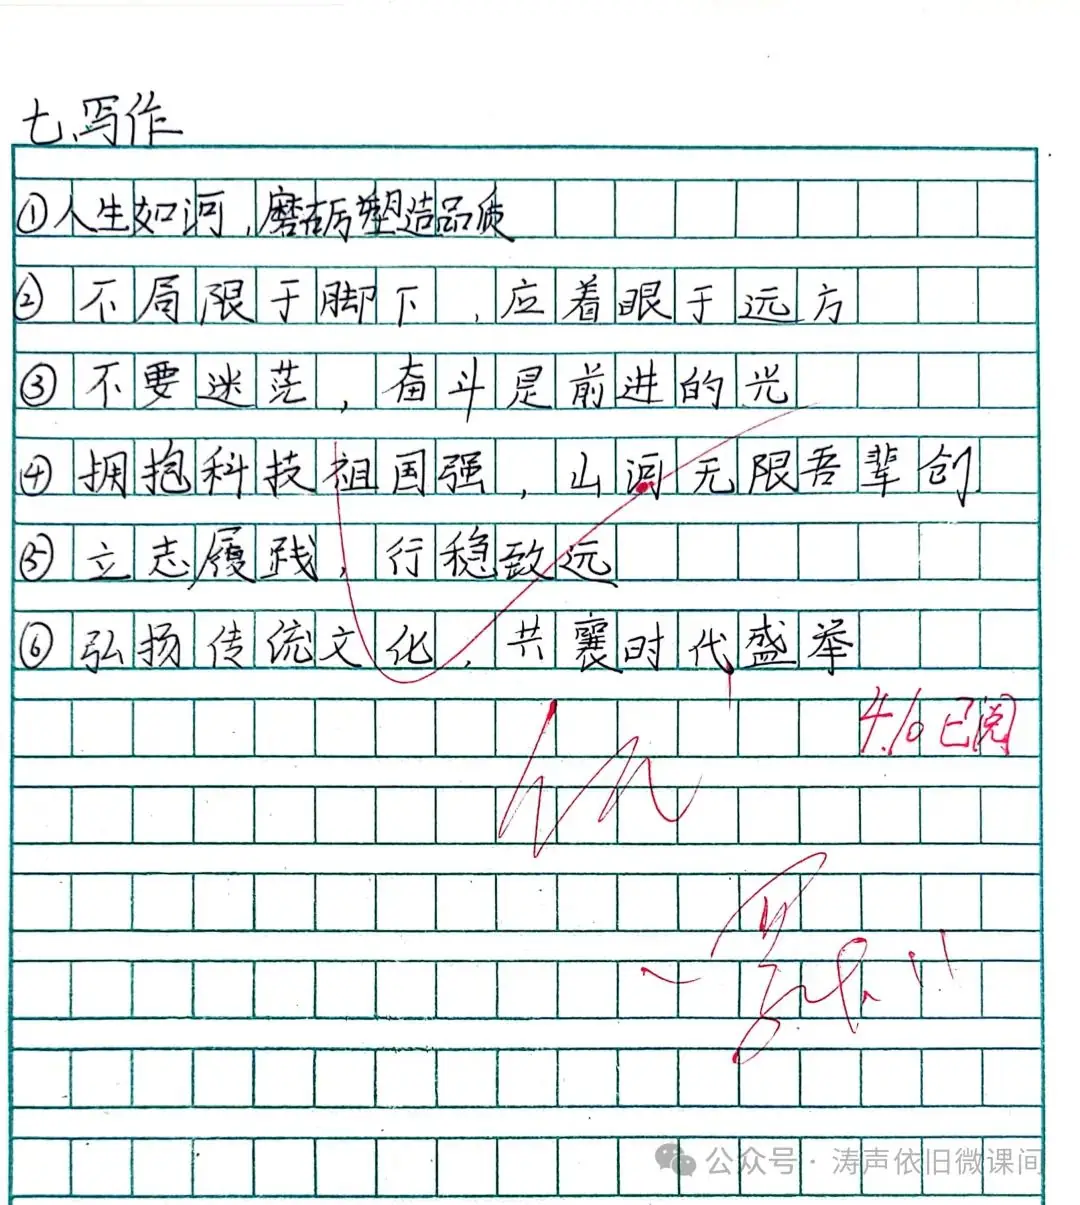 七、写作
①人生如河,磨砺塑造品质
②不局限于脚下,应着眼于远方
③不要迷茫,奋斗是前进的光
④拥抱科技祖国强,山河无限吾辈创
⑤立志履践,行稳致远
⑥弘扬传统文化,共襄时代盛举
4.10已阅
公众号·涛声依旧微课间